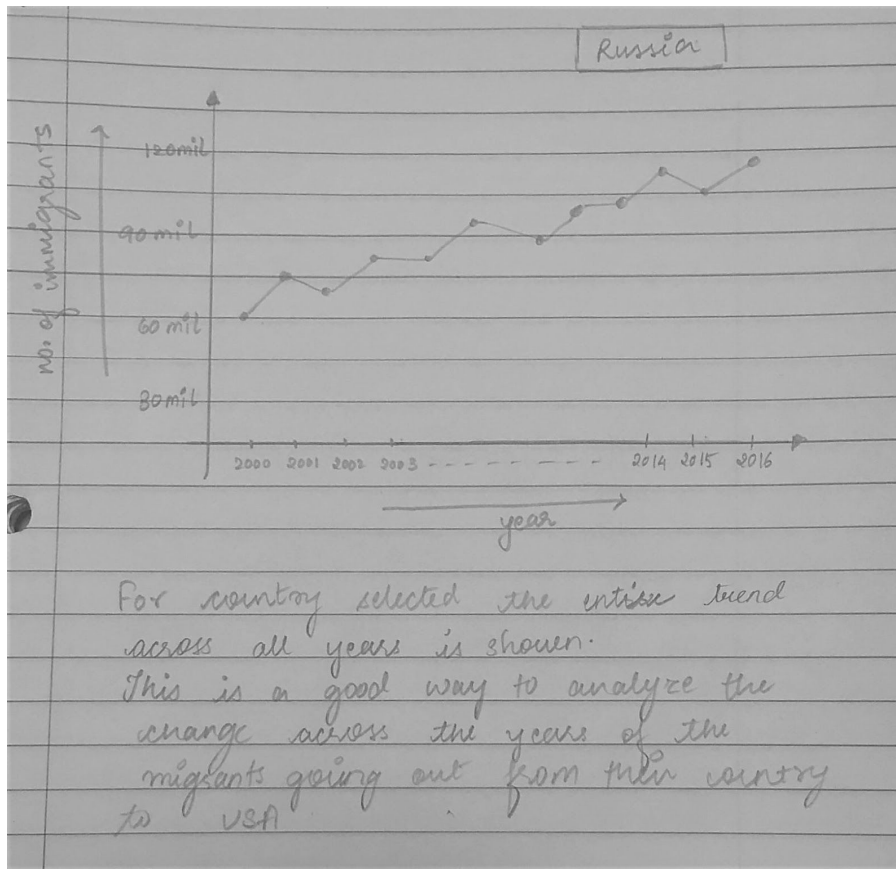 Russia
no. of immigrants
120mil
90 mil
60 mil
30mil
2000 2001 2002 2003 - - - - - - - - - - 2014 2015 2016
year
For country selected the entire trend
across all years is shown.
This is a good way to analyze the
change across the years of the
migrants going out from their country
to USA